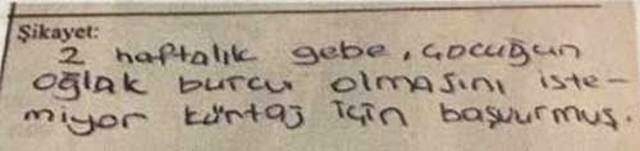 Şikayet:
2 haftalık gebe, çocuğun
oğlak burcu olmasını iste-
miyor kürtaj için başvurmuş.